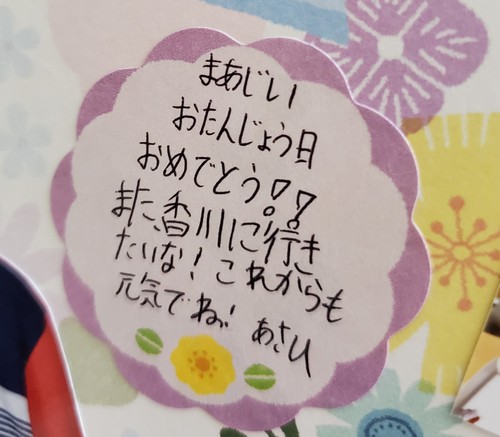 まあじい
おたんじょう日
おめでとう!!
また、香川に行き
たいな!これからも
元気でね! あさひ